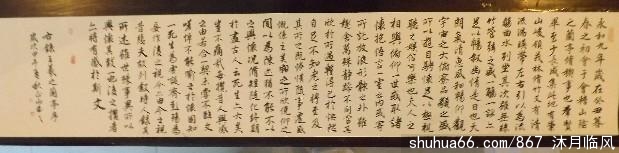 永和九年歲在癸丑暮
春之初會于會稽山陰
之蘭亭修禊事也羣賢
畢至少長咸集此地有崇
山峻領茂林修竹又有清
流激湍映帶左右引以為流
觴曲水列坐其次雖無絲
竹管弦之盛一觴一詠亦
足以暢敘幽情是日也天
朗氣清惠風和暢仰觀
宇宙之大俯察品類之盛
所以遊目騁懷足以極視
聽之娛信可樂也夫人之
相與俯仰一世或取諸
懷抱悟言一室之內或寄
所託放浪形骸之外雖
趣舍萬殊靜躁不同當其
欣於所遇暫得於己快然
自足不知老之將至及
其所之既惓情隨事遷感
慨係之矣向之所欣俛仰之
間以為陳跡猶不能不以
之興懷況脩短隨化終期
於盡古人云死生亦大矣
豈不痛哉每攬昔人興感
之由若合一契未嘗不臨文
嗟悼不能喻之於懷固知
一死生為虛誕齊彭殤為
妄作後之視今亦由今之視
昔悲夫故列敘時人錄其
所述雖世殊事異所以
興懷其致一也後之攬者
亦將有感於斯文
右錄王羲之蘭亭序
歲次甲午
shuhua66.com/867 沐月临风